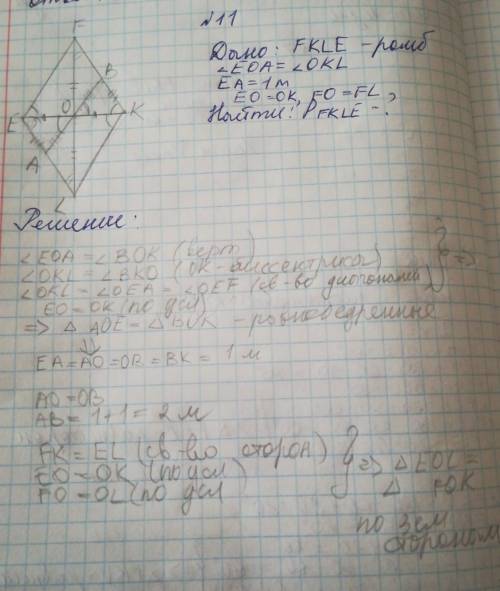 N11
Дано: FKLE - ромб
∠EOA = ∠OKL
EA = 1 м
EO = OK, FO = FL
Найти: P FKLE - ?
F
B
O
K
E
A
L
Решение:
∠EOA = ∠BOK (верт)
∠OKL = ∠BKO (OK - биссектриса)
∠OKL = ∠OEA = ∠OEF (св-во диагоналей)
} =>
EO = OK (по усл)
=> △ AOE = △ BOK - равнобедренные
⇓
EA = AO = OB = BK = 1 м
AO = OB
AB = 1 + 1 = 2 м
FK = EL (св-во сторон)
EO = OK (по усл)
FO = OL (по усл
} => △ EOL =
△ FOK
по 3ем
сторонам